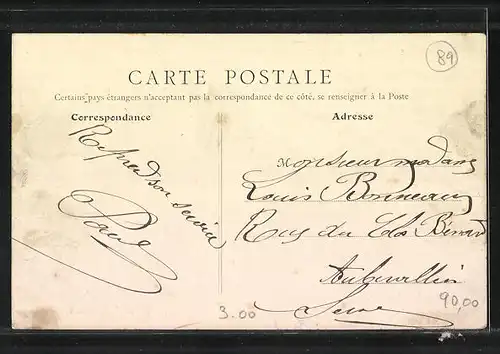 89
CARTE POSTALE
Certains pays étrangers n'acceptant pas la correspondance de ce côté, se renseigner à la Poste
Correspondance
Reprend son service
Paul
Adresse
Monsieur madame
Louis Bonneau
Rue du Clos Bénard
Aubervilliers
Seine
3.00
90,00